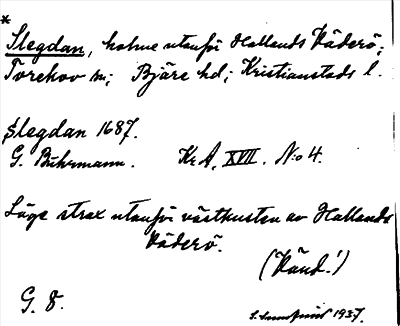 *
Slegdan, holme utanför Hallands Väderö;
Torekov sn; Bjäre hd; Kristianstads l.
Slegdan 1687.
G. Buhrmann. KrA, XVII. No 4.
Läge strax utanför västkusten av Hallands
Väderö.
(Vänd!)
G. 8.
1937.